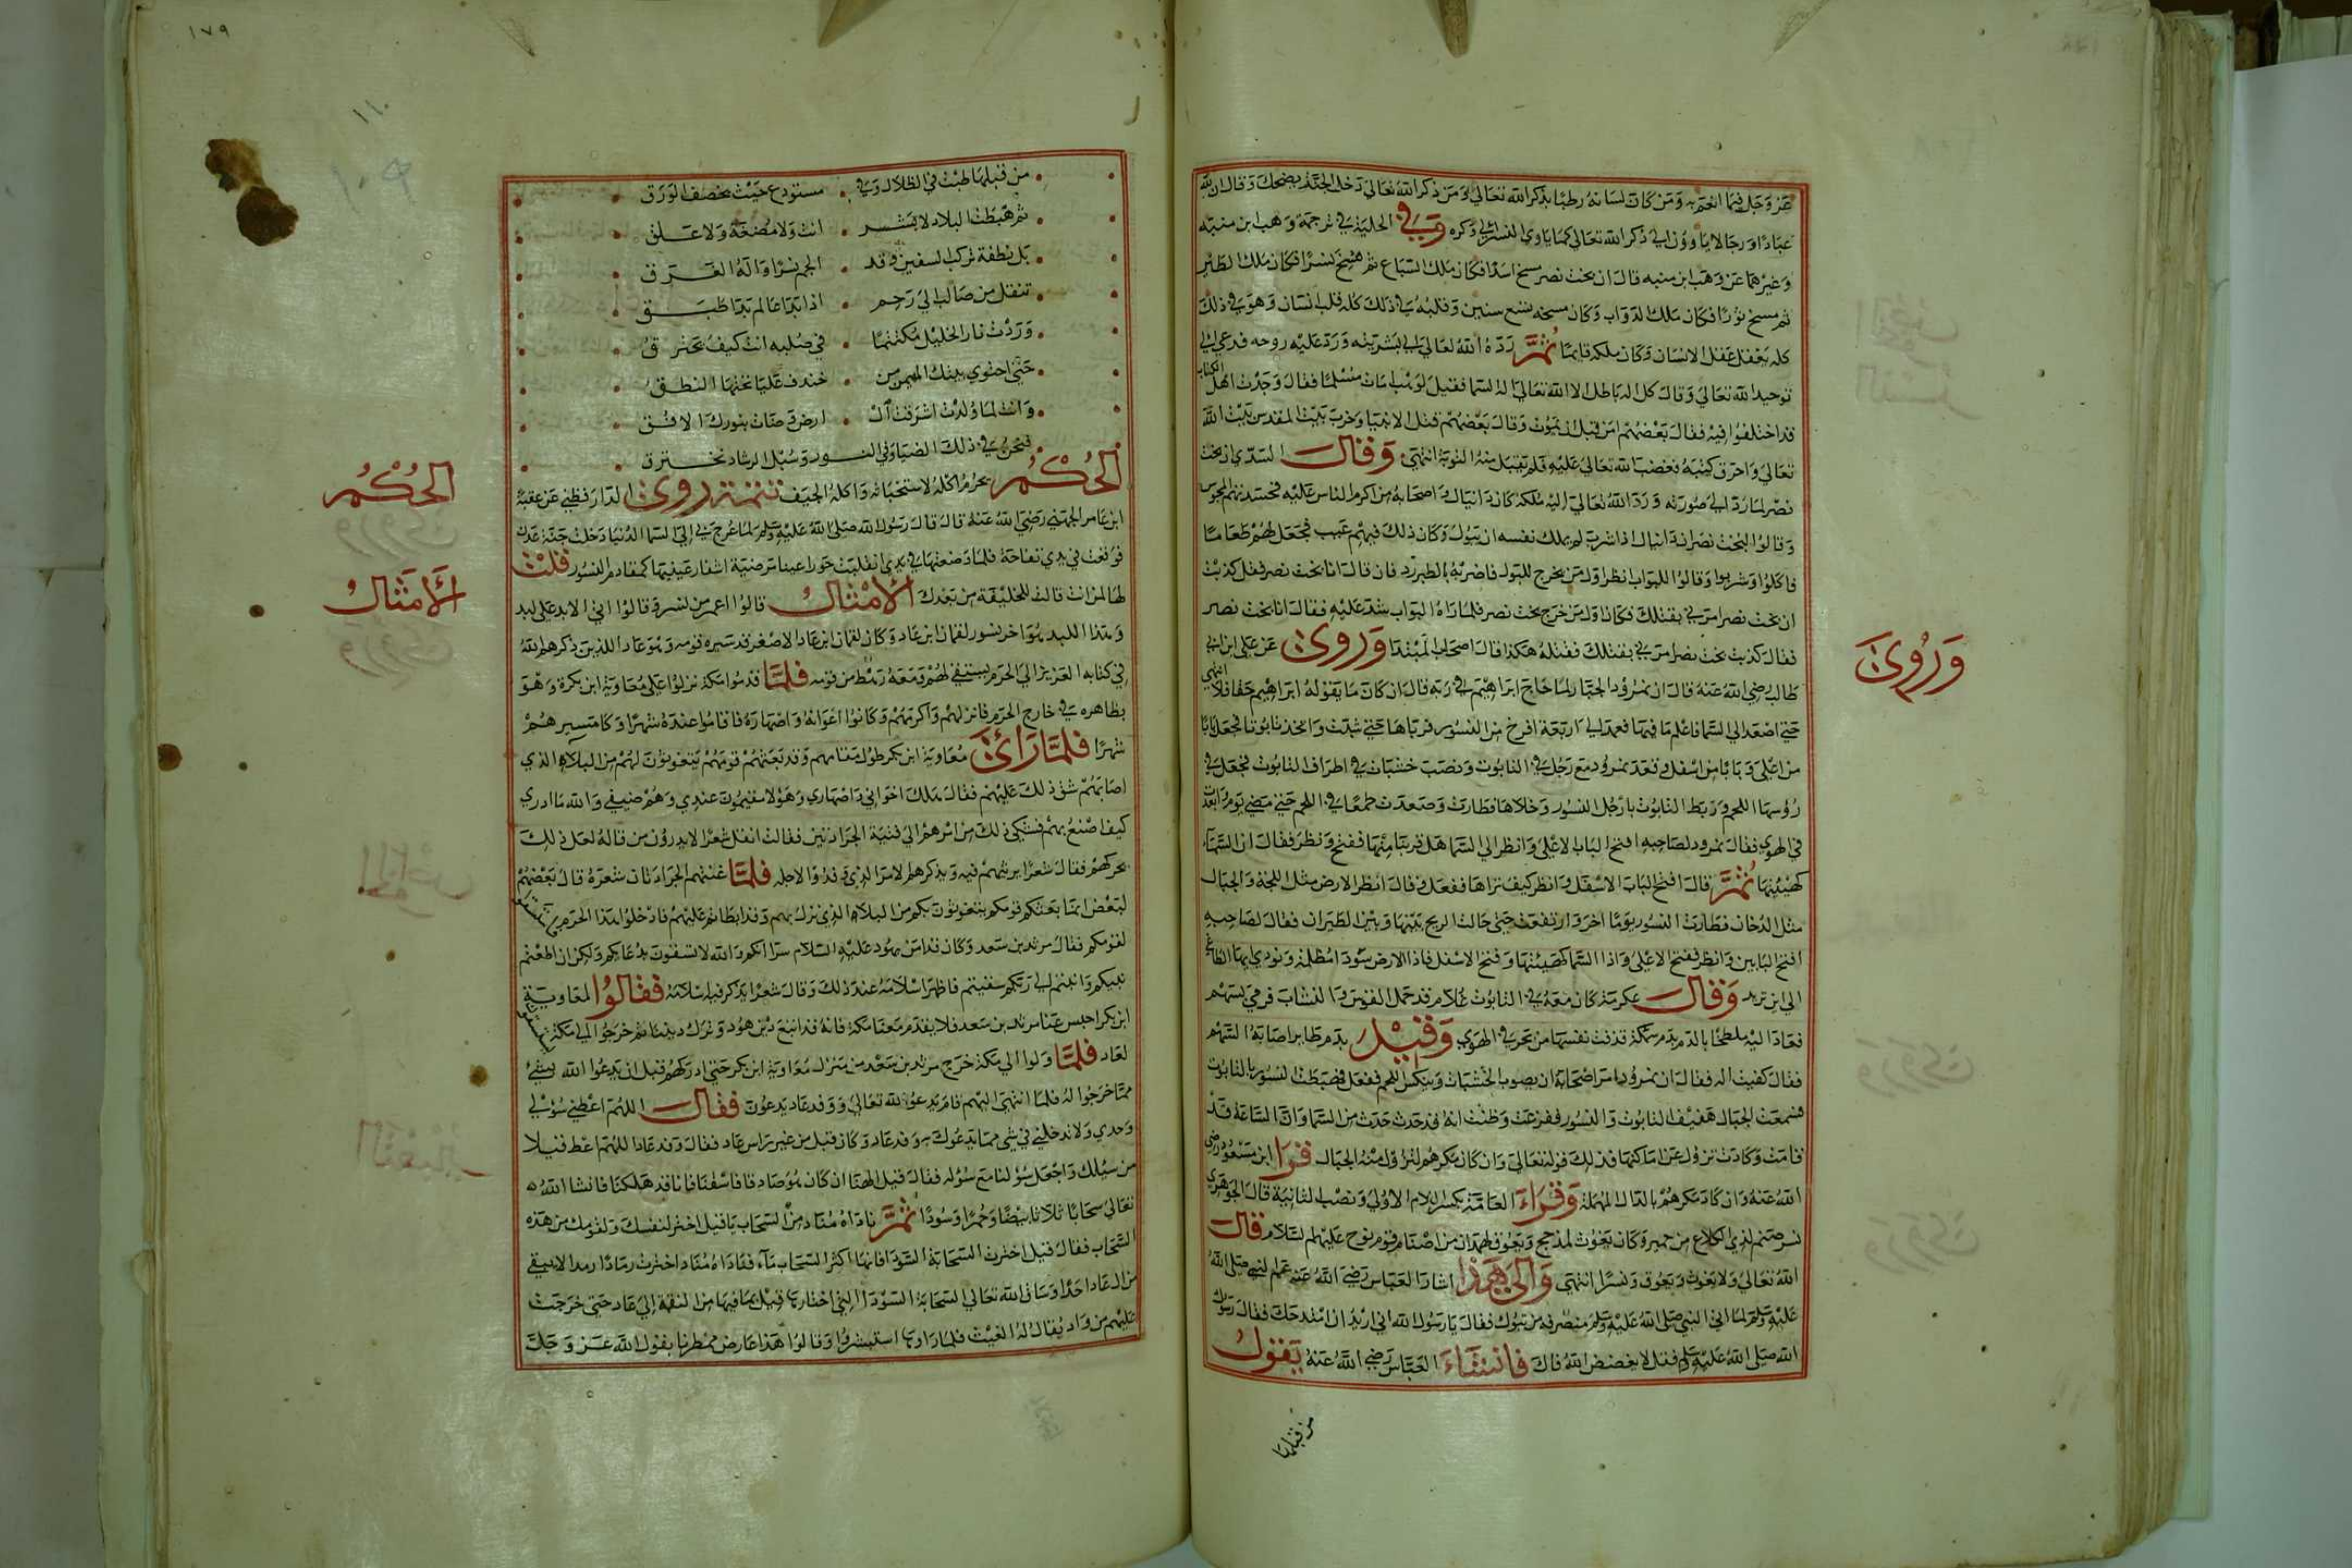 عز وجل فيما انعم به ومن كان لسانه رطبا بذكر الله تعالى ومن ذكر الله تعالى دخل الجنة يضحك وقال ان لله
عبادا ورجالا ياوون الى ذكر الله تعالى كما ياوي النسر الى وكره وفي الحلية في ترجمة وهب ابن منبه
وغيرهما عن وهب ابن منبه قال ان بخت نصر مسخ اسدا فكان ملك السباع ثم مسخ نسرا فكان ملك الطير
ثم مسخ ثورا فكان ملك الدواب وكان مسخه سبع سنين وقلبه في ذلك كله قلب انسان وهو في ذلك
كله يعقل عقل الانسان وكان ملكه قائما ثم رده الله تعالى الى بشريته ورد عليه روحه فدعى الى
توحيد الله تعالى وقال كل اله باطل الا الله تعالى اله السما فقيل لوهب امات مسلما فقال وجدت اهل الكتاب
قد اختلفوا فيه فقال بعضهم امن قبل ان يموت وقال بعضهم قتل الانبيا وخرب بيت المقدس بيت الله
تعالى واحرق كتبه فغضب الله تعالى عليه فلم تقبل منه التوبة انتهى وقال السدي ان بخت
نصر لما رد الى صورته ورد الله تعالى اليه ملكه كان دانيال واصحابه من اكرم الناس عليه فحسدتهم المجوس
وقالوا لبخت نصر ان دانيال اذا شرب لم يملك نفسه ان يبول وكان ذلك فيهم عيب فجعل لهم طعاما
فاكلوا وشربوا وقالوا للبواب انظر اول من يخرج للبول فاضربه بالطبرزد فان قال انا بخت نصر فقل كذبت
ان بخت نصر امرني بقتلك فكان اول من خرج بخت نصر فلما راه البواب شد عليه فقال انا بخت نصر
فقال كذبت بخت نصر امرني بقتلك فقتله هكذا قال اصحاب المبتدا وروى عن علي ابن ابي
انتهى
طالب رضي الله عنه قال ان نمرود الجبار لما حاج ابراهيم في ربه قال ان كان ما يقوله ابراهيم حقا فلا
حتى اصعد الى السما فاعلم ما فيها فعمد الى اربعة افرخ من النسور فرباها حتى شبت واتخذ تابوتا فجعل بابا
من اعلى وبابا من اسفل وقعد نمرود مع رجل في التابوت ونصب خشبات في اطراف التابوت فجعل في
رؤسها اللحم وربط التابوت بارجل النسور وخلاها فطارت وصعدت طمعا في اللحم حتى مضى يوم وابعدت
في الهوى فقال نمرود لصاحبه افتح الباب الاعلى وانظر الى السما هل قربنا منها ففتح ونظر فقال ان السماء
كهيئتها ثم قال افتح الباب الاسفل وانظر كيف تراها ففعل وقال انظر الارض مثل اللجة والجبال
مثل الدخان فطارت النسور يوما اخر وارتفعت حتى حالت الريح بينها وبين الطيران فقال لصاحبه
افتح البابين وانظر ففتح الاعلى واذا السما كهيئتها وفتح الاسفل فاذا الارض سودا مظلمة ونودي ايها الطاغي
الى اين تريد وقال عكرمة كان معه في التابوت غلام قد حمل القوس والنشاب فرمى بسهم
فعاد اليه ملطخا بالدم بدم سمكة قذفت نفسها من بحر في الهوى وقيل بدم طاير اصابه السهم
فقال كفيت اله فقال ان نمرود امر اصحابه ان يصوب الخشبات وينكس اللحم ففعل فهبطت النسور بالتابوت
فسمعت الجبال هفيف التابوت والنسور ففزعت وظنت انه قد حدث حدث من السما وان الساعة قد
قامت وكادت تزول عن اماكنها فذلك قوله تعالى وان كان مكرهم لتزول منه الجبال قرا ابن مسعود رضي
الله عنه وان كاد مكرهم بالدال المهملة وقراء العامة بكسر اللام الاولى ونصب الثانية قال الجوهري
نسر صنم لذي الكلاع من حمير وكان يغوث لمذحج ويعوق لهمدان من اصنام قوم نوح عليه السلام قال
الله تعالى ولا يغوث ويعوق ونسرا انتهى والى هذا اشار العباس رضي الله عنه عم النبي صلى الله
عليه وسلم لما اتى النبي صلى الله عليه وسلم منصرفه من تبوك فقال يا رسول الله اني اريد ان امتدحك فقال رسول
الله صلى الله عليه وسلم قل لا يفضض الله فاك فانشاء العباس رضي الله عنه يقول
من قبلها
وروى
١٧٩
١١٠
١٠٩
من قبلها طبت في الظلال وفي مستودع حيث يخصف الورق
ثم هبطت البلاد لا بشر انت ولا مضغة ولا علق
بل نطفة تركب السفين وقد الجم نسرا واله الغرق
تنقل من صالب الى رحم اذا بدا عالم بدا طبق
وردت نار الخليل مكتتما في صلبه انت كيف تحترق
حتى احتوى بيتك المهيمن من خندف عليا تحتها النطق
وانت لما ولدت اشرقت ال ارض وضات بنورك الافق
فنحن في ذلك الضيا وفي النور وسبل الرشاد نخترق
الحكم يحرم اكله لاستخباثه واكله الجيف تتمة روى الدارقطني عن عقبة
ابن عامر الجهني رضي الله عنه قال قال رسول الله صلى الله عليه وسلم لما عرج بي الى السما الدنيا دخلت جنة عدن
فوقعت في يدي تفاحة فلما وضعتها في يدي انفلقت حورا عينا مرضية اشفار عينيها كمقادم النسور قلت
لها لمن انت قالت للخليفة من بعدك الامثال قالوا اعمر من نسر وقالوا اتى الابد على لبد
وهذا اللبد هو اخر نسور لقمان ابن عاد وكان لقمان ابن عاد الاصغر قد سيره قومه وهو عاد الذين ذكرهم الله
في كتابه العزيز الى الحرم يستسقي لهم ومعه رهط من قومه فلما قدموا مكة نزلوا على معاوية ابن بكرة وهو
بظاهره في خارج الحرم فانزلهم واكرمهم وكانوا اخوانه واصهاره فاقاموا عنده شهرا وكا مسيرهم
شهرا فلما رائ معاوية ابن بكر طول مقامهم وقد بعثهم قومهم يتغوثون لهم من البلاء الذي
اصابهم شق ذلك عليهم فقال هلك اخواني واصهاري وهؤلا مقيمون عندي وهم ضيفي والله ما ادري
كيف اصنع بهم فشكى ذلك من امرهم الى قينتيه الجرادتين فقالت انقل شعرا لا يدرون من قاله لعل ذلك
يحركهم فقال شعرا يرثيهم فيه ويذكرهم الامر الذي وفدوا لاجله فلما غنتهم الجرادتان شعره قال بعضهم
لبعض انما بعثكم قومكم يتغوثون بكم من البلاء الذي نزل بهم وقد ابطاتم عليهم فادخلوا هذا الحرم نستسقي
لقومكم فقال مرثد بن سعد وكان قد امن بهود عليه السلام سرا انكم والله لا تسقون بدعائكم ولكن ان اطعتم
نبيكم وانبتم الى ربكم سقيتم فاظهر اسلامه عند ذلك وقال شعرا يذكر فيه اسلامه فقالوا لمعاوية
ابن بكر احبس عنا مرثد بن سعد فلا يقدم معنا مكة فانه قد اتبع دين هود وترك ديننا ثم خرجوا الى مكة يستسقون
لعاد فلما ولوا الى مكة خرج مرثد بن سعد من منزل معاوية ابن بكر حتى ادركهم قبل ان يدعوا الله بشئ
مما خرجوا له فلما انتهى اليهم قام يدعو الله تعالى ووفد عاد يدعون فقال اللهم اعطني سؤلي
وحدي ولا تدخلني في شي مما يدعوك به وفد عاد وكان قيل من عنبر راس عاد فقال وفد عاد اللهم اعط قيلا
من سؤلك واجعل سؤلنا مع سؤله فقال قيل الهنا ان كان هود صادقا فاسقنا فانا قد هلكنا فانشا الله
تعالى سحابا ثلاثا بيضا وحمرا وسودا ثم ناداه مناد من السحاب يا قيل اختر لنفسك ولقومك من هذه
السحاب فقال قيل اخترت السحابة السودا فانها اكثر السحاب ماء فناداه مناد اخترت رمادا رمدا لا يبقي
من ال عاد احدا وساق الله تعالى السحابة السودا التي اختارها قيل بما فيها من النقمة الى عاد حتى خرجت
عليهم من واد يقال له الغيث فلما راوها استبشروا وقالوا هذا عارض ممطرنا يقول الله عز وجل
الحكم
الامثال